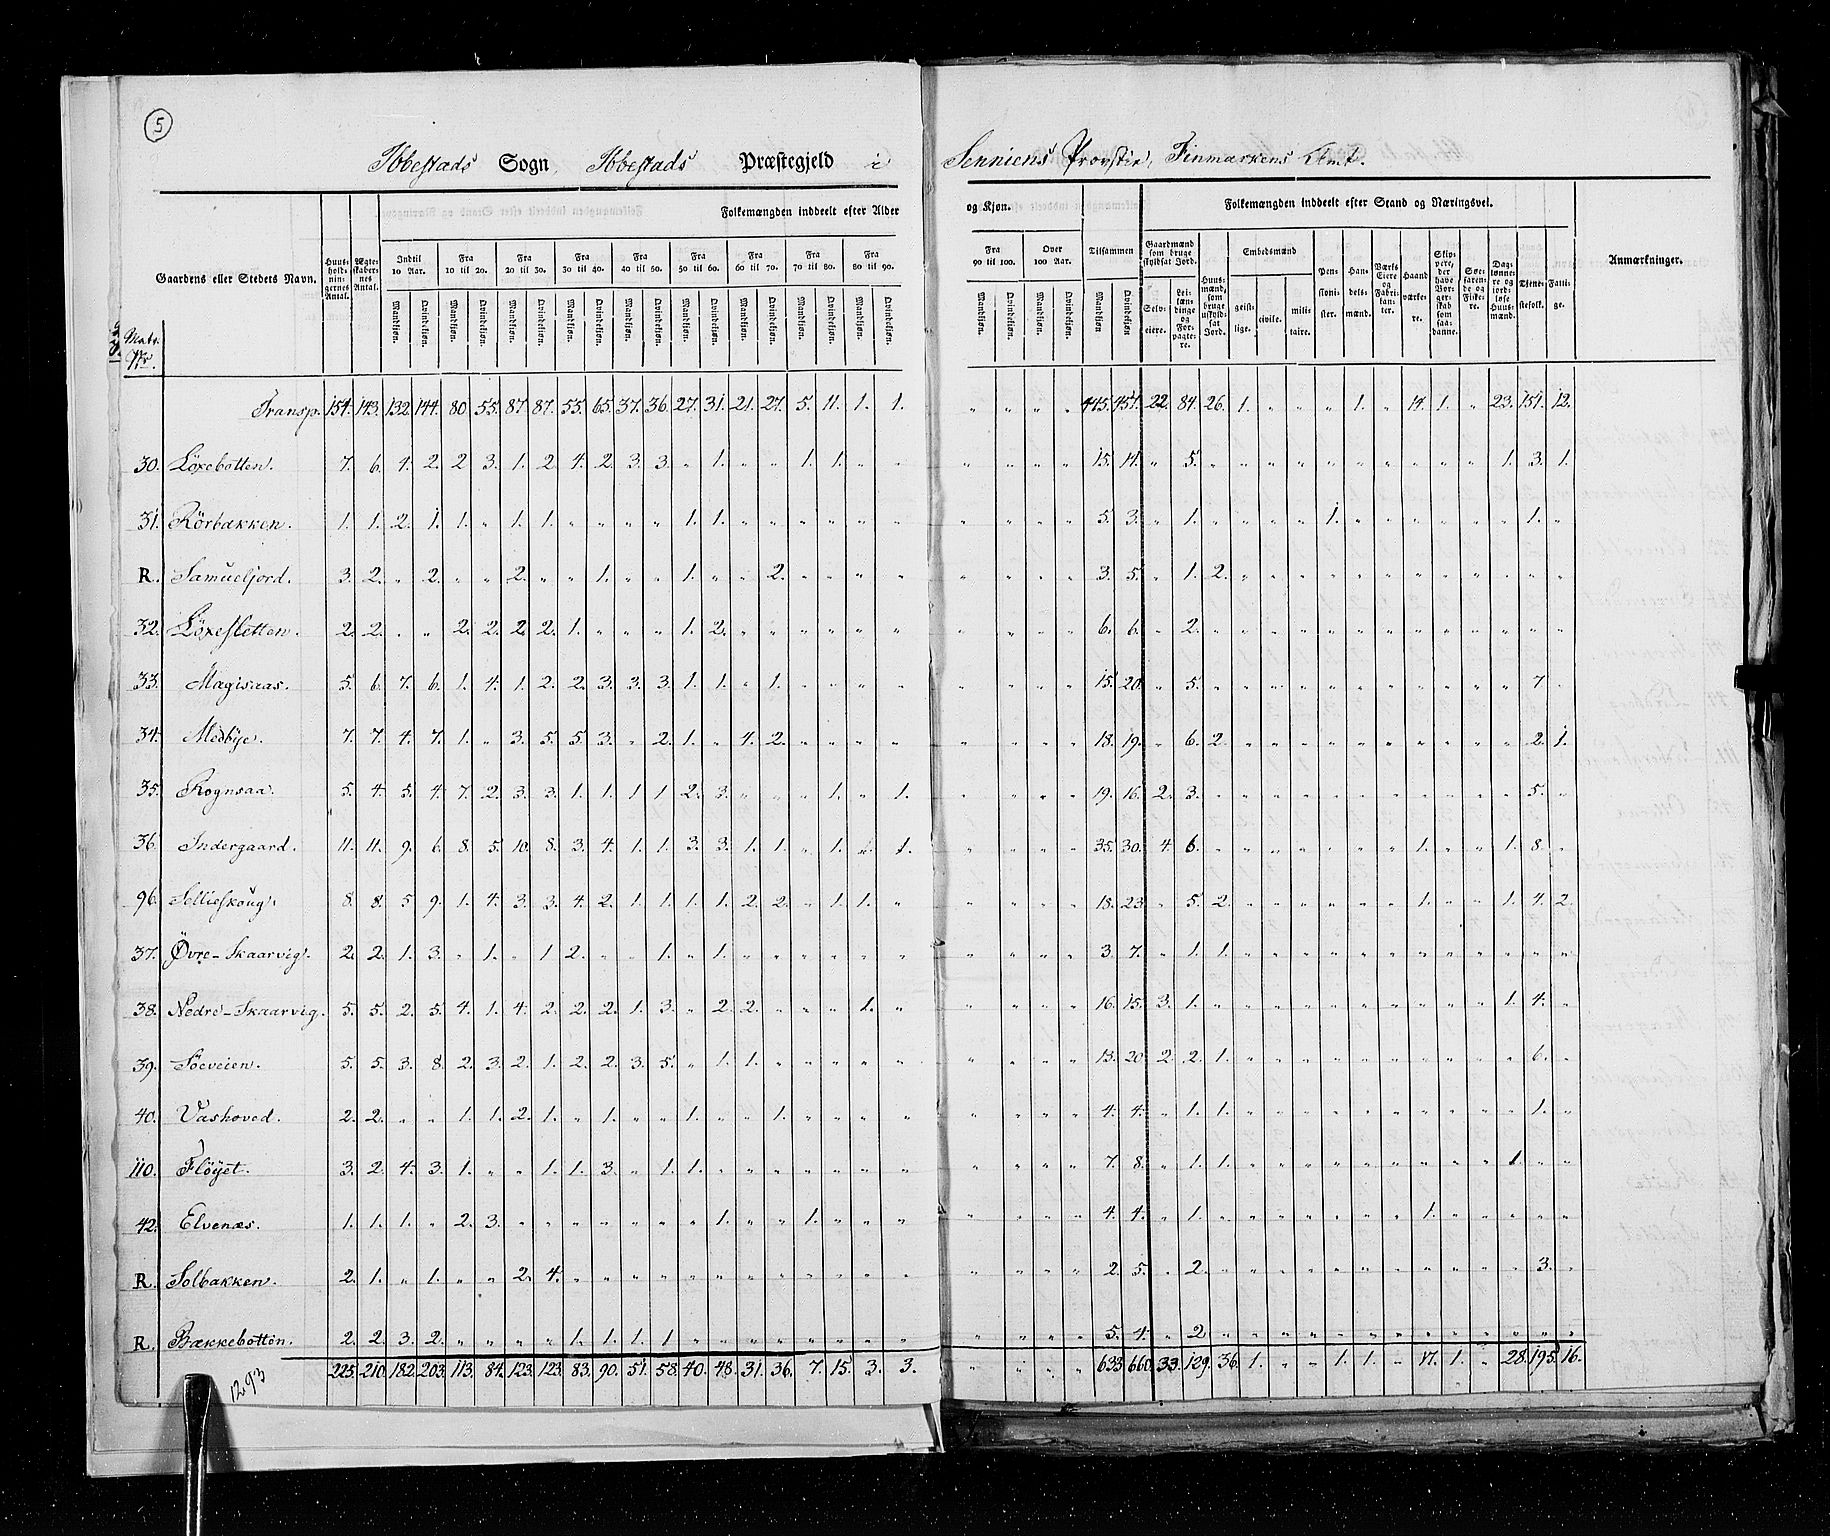 5
Ibbestads Sogn, Ibbestads Præstegjeld i Senniens Provstie, Finmarkens Amt.
Gaardens eller Stedets Navn. Huusholdningernes Antal. Ægteskabernes Antal. Folkemængden inddeelt efter Alder og Kjøn. Folkemængden inddeelt efter Stand og Næringsvei. Anmærkninger.
Indtil 10 Aar. Fra 10 til 20. Fra 20 til 30. Fra 30 til 40. Fra 40 til 50. Fra 50 til 60. Fra 60 til 70. Fra 70 til 80. Fra 80 til 90. Fra 90 til 100. Over 100 Aar. Tilsammen
Gaardmænd som bruge skyldsat Jord. Huusmænd, som bruge uskyldsat Jord. Embedsmænd Pensionister. Handelsmænd. Værkseiere og Fabrikanter. Haandværkere. Skippere, der have Borgerskab som saadanne. Søefarende og Fiskere. Daglønnere og jordløse Huusmænd. Tjenestefolk. Fattige.
Mandkjøn. Qvindekjøn. Selveiere. Leilændinge og Forpagtere. geistlige. civile. militaire.
Matr. Nr.
Transp. 154. 143. 132. 144. 80. 55. 87. 87. 55. 65. 37. 36. 27. 31. 21. 27. 5. 11. 1. 1. " " " " 445. 457. 22. 84. 26. 1. " " " 1. " 14. 1. " 23. 151. 12.
30. Löxebotten. 7. 6. 4. 2. 2 3. 1. 2. 4. 2. 3. 3. " 1. " " 1. 1. " " " " " " 15. 14. " 5. " " " " " " " " " " 1. 3. 1.
31. Rörbakken. 1. 1. 2. 1. 1. " 1. 1. " " " " 1. 1. " " " " " " " " " " 5. 3. " 1. " " " " 1. " " " " " " 1. "
R. Samueljord. 3. 2. " 2. " " 2. " " 1. " " 1. " " 2. " " " " " " " " 3. 5. " 1. 2. " " " " " " " " " " " "
32. Löxesletten. 2. 2. " " 2. 2. 2. 2. 1. " " " 1. 2. " " " " " " " " " " 6. 6. " 2. " " " " " " " " " " " " "
33. Magisaas. 5. 6. 7. 6. 1. 4. 1. 2. 2. 3. 3. 3. 1. 1. " 1. " " " " " " " " 15. 20. " 5. " " " " " " " " " " " 7 "
34. Medbye. 7. 7. 4. 7. 1. " 3. 5. 5. 3. " 2. 1. " 4. 2. " " " " " " " " 18. 19. " 6. 2. " " " " " " " " " " 2. 1.
35. Rognsaa. 5. 4. 5. 4. 7. 2. 3. 3. 1. 1. 1 1 2. 3. " " " 1. " 1. " " " " 19. 16. 2. 3. " " " " " " " " " " " 5. "
36. Indergaard. 11. 11. 9. 6. 8. 5. 10. 8. 3. 4. 1. 1. 3. 3. 1. 1. " 1. " 1. " " " " 35. 30. 4. 6. " " " " " " " 1. " " 1. 8. "
96. Sellieskoug. 8. 8. 5 9. 1. 4. 3. 3. 4. 2. 1. 1. 1. 1. 2. 2. " 1. 1. " " " " " 18. 23. " 5. 2. " " " " " " 1. " " 1. 4. 2.
37. Övre-Skaarvig. 2. 2. 1. 3. " 1. " 1 2. " " 1. " 1. " " " " " " " " " " 3. 7. " 1. 1. " " " " " " " " " " " "
38. Nedre-Skaarvig. 5. 5. 2. 5. 4. 1. 4. 2. 2. 2. 1. 3. " 2. 2. " " " 1. " " " " " 16. 15. 3. 1. " " " " " " " " " " 1. 4. "
39. Söeveien. 5. 5. 3. 8. 2. 3. 2. 1. 2. 2. 3. 5. " 1. 1. " " " " " " " " " 13. 20. 2. 2. 1. " " " " " " " " " " 6. "
40. Vashoved. 2. 2. " " 1. 1. 2. 1. " 1. " " 1. " " 1. " " " " " " " " 4. 4. " 1. 1. " " " " " " " " " " 1. "
110. Flöyet. 3. 2. 4. 3. 1. " " 1. 1. 3. " 1. 1. " " " " " " " " " " " 7. 8. " 1. 1. " " " " " " " " " 1. " "
42. Elvenæs. 1. 1. 1. " 2. 3. " " " " " " " 1. " " 1. " " " " " " " 4. 4. " 1. " " " " " " " 1. " " " " "
R. Solbakken. 2. 1. " 1. " " 2. 4. " " " " " " " " " " " " " " " " 2. 5. " 2. " " " " " " " " " " " 3. "
R. Bækkebotten. 2. 2. 3. 2. " " " " 1. 1. 1. 1 " " " " " " " " " " " " 5. 4. " 2 " " " " " " " " " " " " "
225. 210. 182. 203. 113. 84. 123. 123. 83. 90. 51. 58. 40. 48. 31. 36. 7. 15. 3. 3. " " " " 633. 660. 33. 129. 36. 1. " " 1. 1. " 17. 1. " 28. 195. 16.
1293